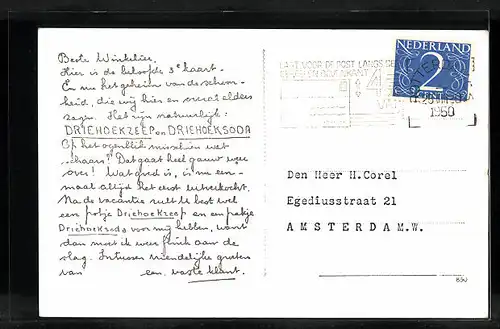 Beste Winkelier.
Hier is de beloofde 3e kaart.
En nu het geheim van de schoon-
heid, die wij hier en overal elders
zagen. Het zijn natuurlijk:
DRIEHOEKZEEP en DRIEHOEKSODA
Op het ogenblik misschien wat
schaars? Dat gaat heel gauw weer
over! Wat goed is, is nu een-
maal altijd het eerst uitverkocht.
Na de vacantie zult U best wel
een potje DRIEHOEKZEEP en een pakje
DRIEHOEKSODA voor mij hebben, want
dan moet ik weer flink aan de
slag. Intussen vriendelijke groeten
van een vaste klant.
NEDERLAND
2
CENT
POST LANGS
1950
Den Heer H.Corel
Egediusstraat 21
AMSTERDAM.W.
850